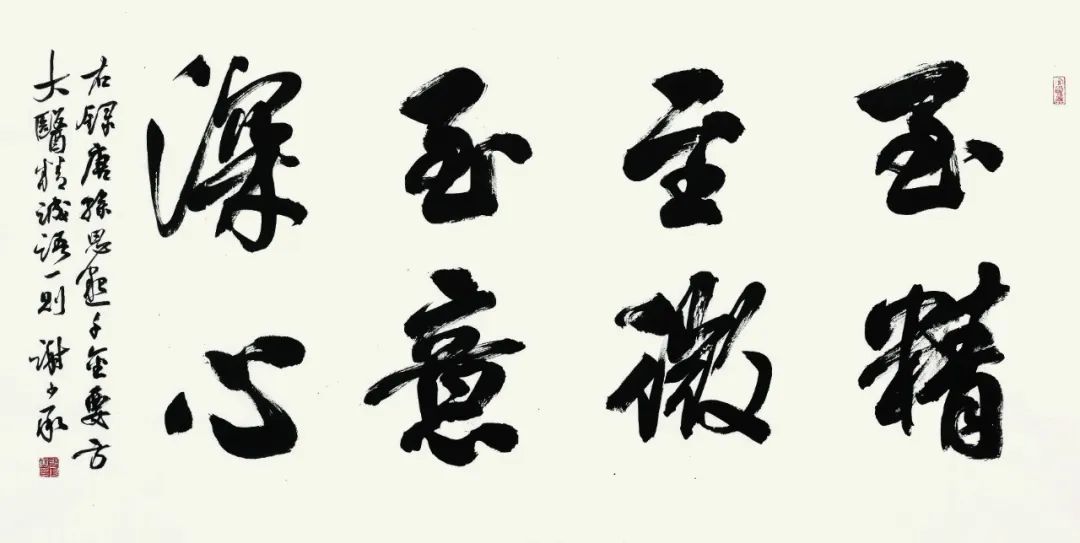 至精
至微
至意
深心
右錄唐孫思邈千金要方
大醫精誠語一則 謝少承